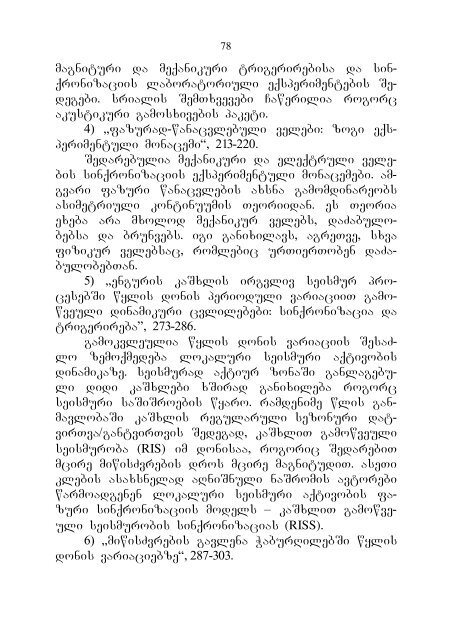 78
მაგნიტური და მექანიკური ტრიგერირებისა და სინ-
ქრონიზაციის ლაბორატორიული ექსპერიმენტების შე-
დეგები. სრიალის შემთხვევები ჩაწერილია როგორც
აკუსტიკური გამოსხივების პაკეტი.
4) „ფაზურად-წანაცვლებული ველები: ზოგი ექს-
პერიმენტული მონაცემი“, 213-220.
შედარებულია მექანიკური და ელექტრული ველე-
ბის სინქრონიზაციის ექსპერიმენტული მონაცემები. ამ-
გვარი ფაზური წანაცვლების ახსნა გამომდინარეობს
ასიმეტრიული კონტინუუმის თეორიიდან. ეს თეორია
ეხება არა მხოლოდ მექანიკურ ველებს, დაძაბულო-
ბებსა და ბრუნვებს. იგი განიხილავს, აგრეთვე, სხვა
ფიზიკურ ველებსაც, რომლებიც ურთიერთობენ დაძა-
ბულობებთან.
5) „ენგურის კაშხლის ირგვლივ სეისმურ პრო-
ცესებში წყლის დონის პერიოდული ვარიაციით გამო-
წვეული დინამიკური ცვლილებები: სინქრონიზაცია და
ტრიგერირება”, 273-286.
გამოკვლეულია წყლის დონის ვარიაციის შესაძ-
ლო ზემოქმედება ლოკალური სეისმური აქტივობის
დინამიკაზე. სეისმურად აქტიურ ზონაში განლაგებუ-
ლი დიდი კაშხლები ხშირად განიხილება როგორც
სეისმური საშიშროების წყარო. რამდენიმე წლის გან-
მავლობაში კაშხლის რეგულარული სეზონური დატ-
ვირთვა/განტვირთვის შედეგად, კაშხლით გამოწვეული
სეისმურობა (RIS) იმ დონისაა, როგორიც შედარებით
მცირე მიწისძვრების დროს მცირე მაგნიტუდით. ასეთი
კლების ასახსნელად აღნიშნული ნაშრომის ავტორები
წარმოადგენენ ლოკალური სეისმური აქტივობის ფა-
ზური სინქრონიზაციის მოდელს – კაშხლით გამოწვე-
ული სეისმურობის სინქრონიზაციას (RISS).
6) „მიწისძვრების გავლენა ჭაბურღილებში წყლის
დონის ვარიაციებზე“, 287-303.